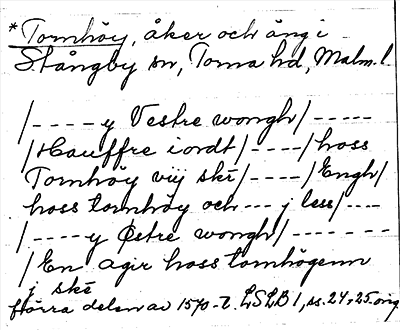 *Tornhöy, åker och äng i
Stångby sn, Torna hd, Malm. l.
/----y Vestre wongh/-----
/Hauffre iordt/----/hoss
Tornhöy vij ske/----/Engh/
hoss tornhöy och --- j less/----
/----y Østre wongh/------
/En agir hoss tornhögenn
j ske
förra delen av 1570-t. LSLB 1, ss. 24-25. orig